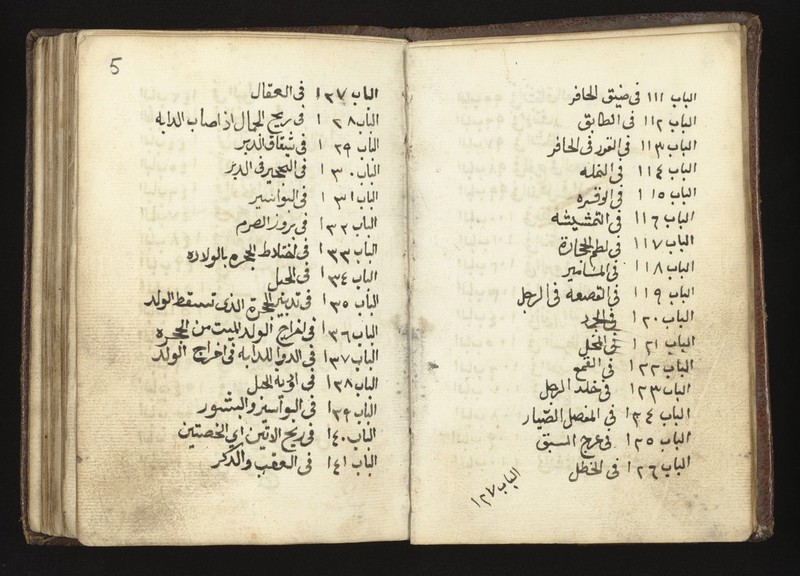 الباب ١١١ فى ضيق الحافر
الباب ١١٢ فى الطابق
الباب ١١٣ فى القور فى الحافر
الباب ١١٤ فى النمله
الباب ١١٥ فى الوقره
الباب ١١٦ فى التمشيشه
الباب ١١٧ فى لطم الحجارة
الباب ١١٨ فى المسامير
الباب ١١٩ فى القصعه فى الرجل
الباب ١٢٠ فى الجرد
الباب ١٢١ فى النخل
الباب ١٢٢ فى القمع
الباب ١٢٣ فى خلد الرجل
الباب ١٢٤ فى المفصل
الباب ١٢٥ فى عرج
الباب ١٢٦ فى الخطل
الباب ١٢٧
5
الباب ١٢٧ فى العقال
الباب ١٢٨ فى ريح الجمال اذا صاب الدابه
الباب ١٢٩ فى شقاق الدبر
الباب ١٣٠ فى الدبر
الباب ١٣١ فى البواسير
الباب ١٣٢ فى بروز الصرم
الباب ١٣٣ فى اختلاط الحجره بالولاده
الباب ١٣٤ فى الحبل
الباب ١٣٥ فى تدبير الحجرة الذى تسقط الولد
الباب ١٣٦ فى اخراج الولد الميت من الحجره
الباب ١٣٧ فى الدوا للدابه فى اخراج الولد
الباب ١٣٨ فى ادوية الحبل
الباب ١٣٩ فى البواسير والبثور
الباب ١٤٠ فى ريح الانثيين اي الخصتين
الباب ١٤١ فى العقب والذكر